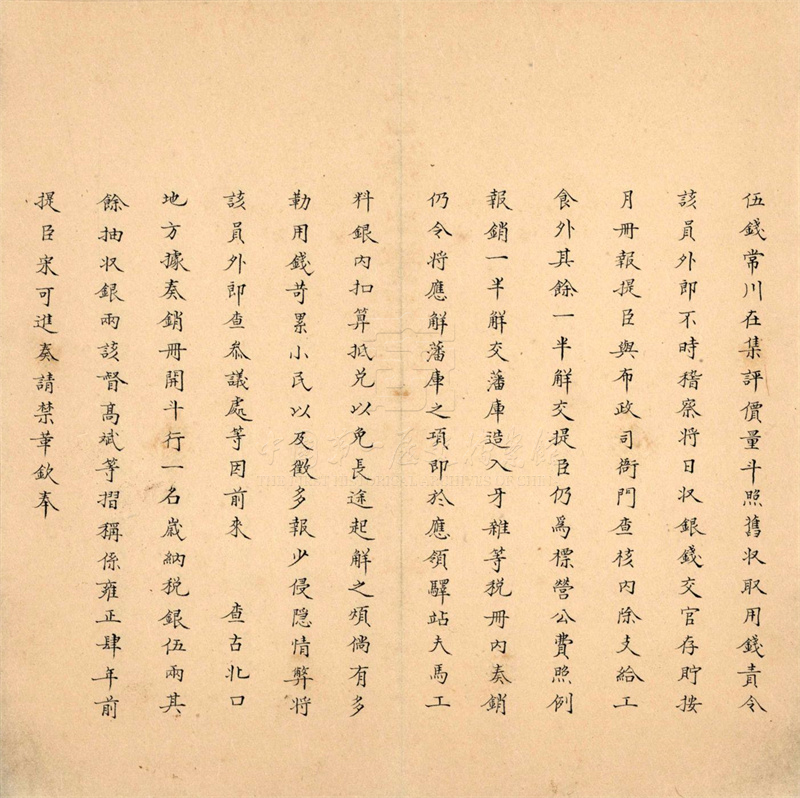 伍錢常川在集評價量斗照舊収取用錢責令
該員外郎不時稽察將日収銀錢交官存貯按
月冊報提臣與布政司衙門查核內除支給工
食外其餘一半解交提臣仍爲標營公費照例
報銷一半解交藩庫造入牙雜等稅冊內奏銷
仍令將應解藩庫之項即於應領驛站夫馬工
料銀內扣算抵兑以免長途起解之煩倘有多
勒用錢苛累小民以及徵多報少侵隐情弊將
該員外郎查叅議處等因前來　查古北口
地方據奏銷冊開斗行一名歲納稅銀伍兩其
餘抽収銀兩該督高斌等摺稱係雍正肆年前
提臣宋可進奏請禁革欽奉
中國第一歷史檔案館
THE FIRST HISTORICAL ARCHIVES OF CHINA